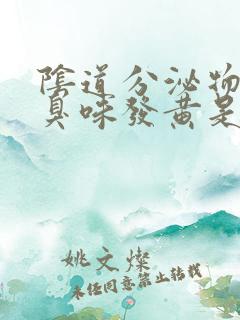 陰道分泌物
臭味發黃是
姚文燦
未經同意禁止轉載